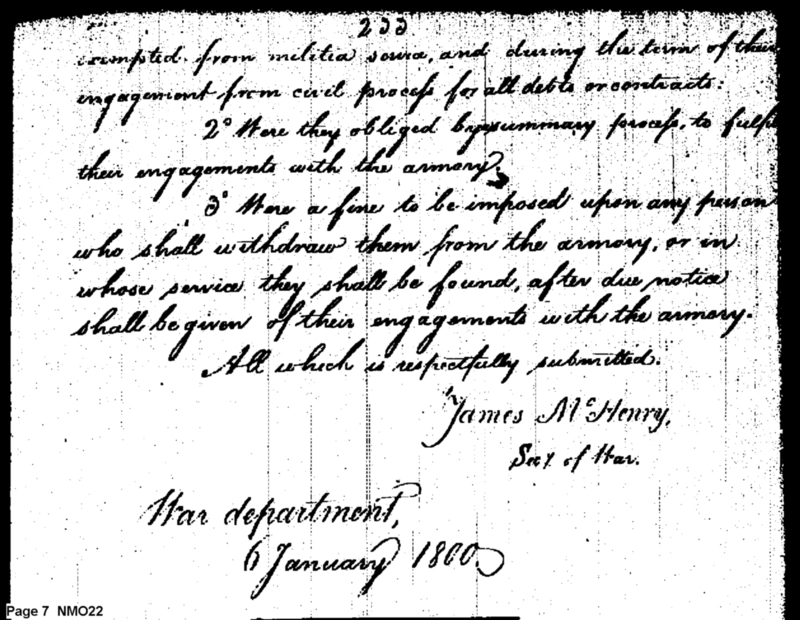 233
exempted from militia servce, and during the term of their
engagement from civil process for all debts or contracts:
2° Were they obliged by summary process, to fulfil
their engagements with the armory.
3° Were a fine to be imposed upon any person
who shall withdraw them from the armory, or in
whose service they shall be found, after due notice
shall be given of their engagements with the armory.
All which is respectfully submitted.
James McHenry,
Secy. of War.
War department,
6 January 1800.
Page 7 NMO22